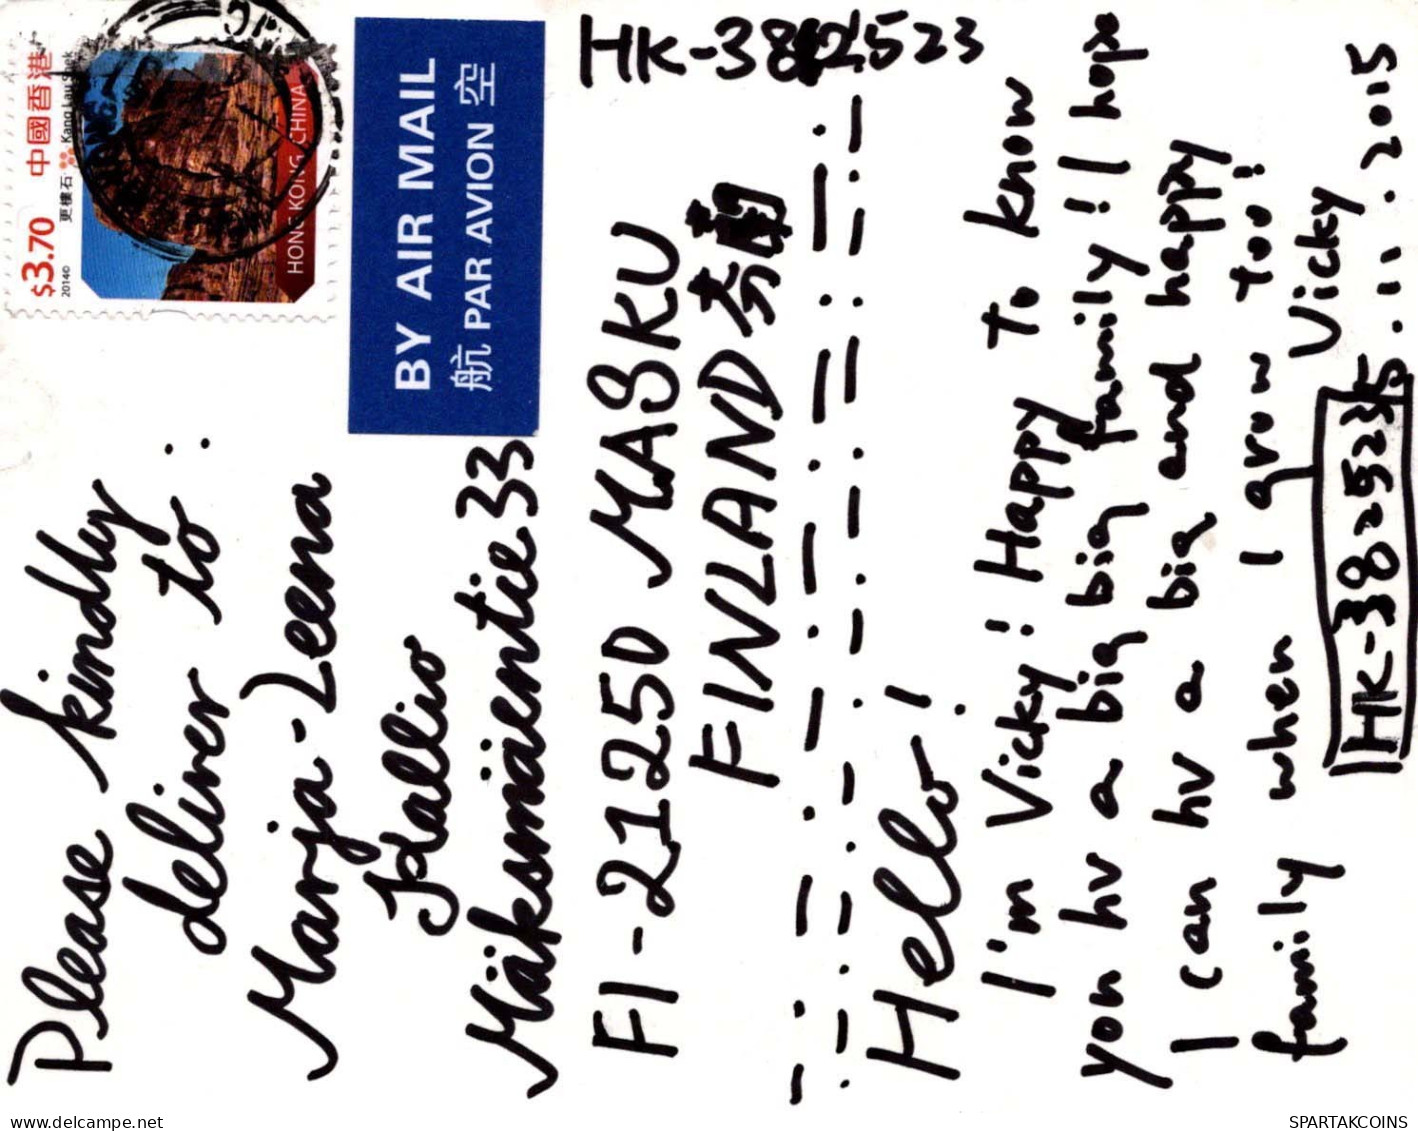 $3.70 中國香港
2014© 更樓石 Kang Lau Shek
HONG KONG, CHINA
BY AIR MAIL
航 PAR AVION 空
Please kindly
deliver to:
Marja-Leena
Kallio
Mäksmäentie 33
FI-21250 MASKU
FINLAND 芬蘭
HK-3825 23
Hello!
I'm Vicky! Happy to know
you hv a big big big family! I hope
I can hv a big and happy
family when I grow too!
Vicky
HK-382523 5.11.2015
delcampe.net
SPARTAKCOINS